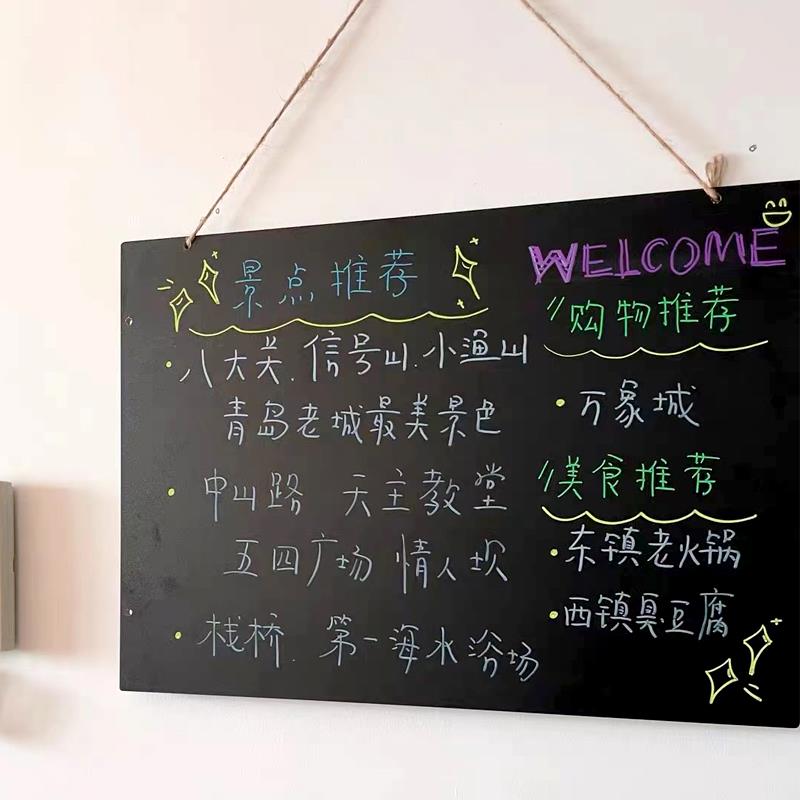 景点推荐
八大关.信号山.小渔山
青岛老城最美景色
中山路 天主教堂
五四广场 情人坝
栈桥. 第一海水浴场
WELCOME
购物推荐
万象城
美食推荐
东镇老火锅
西镇臭豆腐